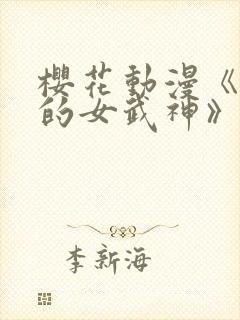 櫻花動漫《
的女武神》
李新海